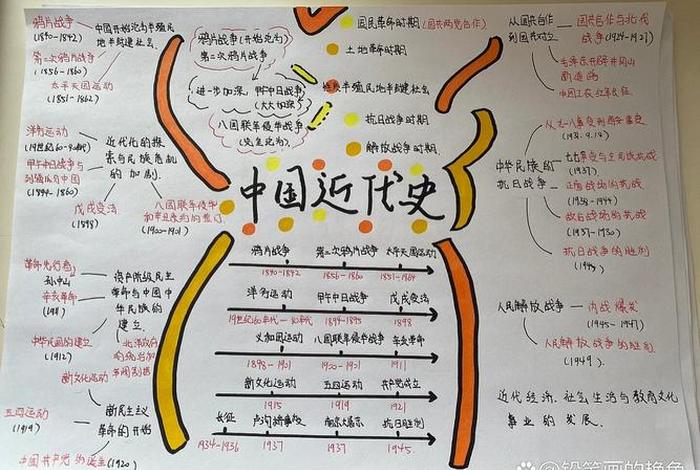 鸦片战争
(1840-1842)
第二次鸦片战争
(1856-1860)
太平天国运动
(1851-1862)
中国开始沦为半殖民
地半封建社会
洋务运动
(19世纪60-90年代)
甲午中日战争与
(1894-1860)
戊戌变法
(1898)
八国联军侵华
(1900-1901)
近代化的探
索与民族危机
的加剧
革命先行者
孙中山
辛亥革命
(1911)
中华民国的建立
(1912)
北洋政府
资产阶级民主
革命与中国中
华民族的
建立
新文化运动
五四运动
(1919)
中国共产党的诞生(1920)
新民主主义
革命的开始
鸦片战争(开始沦为)
第二次鸦片战争
进一步加深,甲午中日战争
(大大加深)
八国联军侵华战争
(完全沦为)
国民革命时期(国共两党合作)
土地革命时期
半殖民地半封建社会
抗日战争时期
解放战争时期
中国近代史
鸦片战争 第二次鸦片战争 太平天国运动
1840-1842 1856-1860 1851-1864
洋务运动 甲午中日战争 戊戌变法
19世纪60年代-90年代 1894-1895 1898
义和团运动 八国联军侵华战争 辛亥革命
1898-1901 1900-1901 1911
新文化运动 五四运动 共产党成立
1915 1919 1921
长征 卢沟桥事变 南京大屠杀 抗日胜利
1934-1936 1937 1937 1945
从国共合作
到国共对立
国共合作与北伐
战争(1924-1927)
毛泽东开辟井冈山
中国工农红军长征
中华民族的
抗日战争
从九一八事变到西安事变
(1931.9.18)
七七事变与全民族抗战
(1937)
正面战场的抗战
(1938-1944)
敌后战场的抗战
抗日战争的胜利
人民解放战争
内战爆发
(1945-1947)
人民解放战争的胜利
(1949)
近代经济、社会生活与教育文化
事业的发展